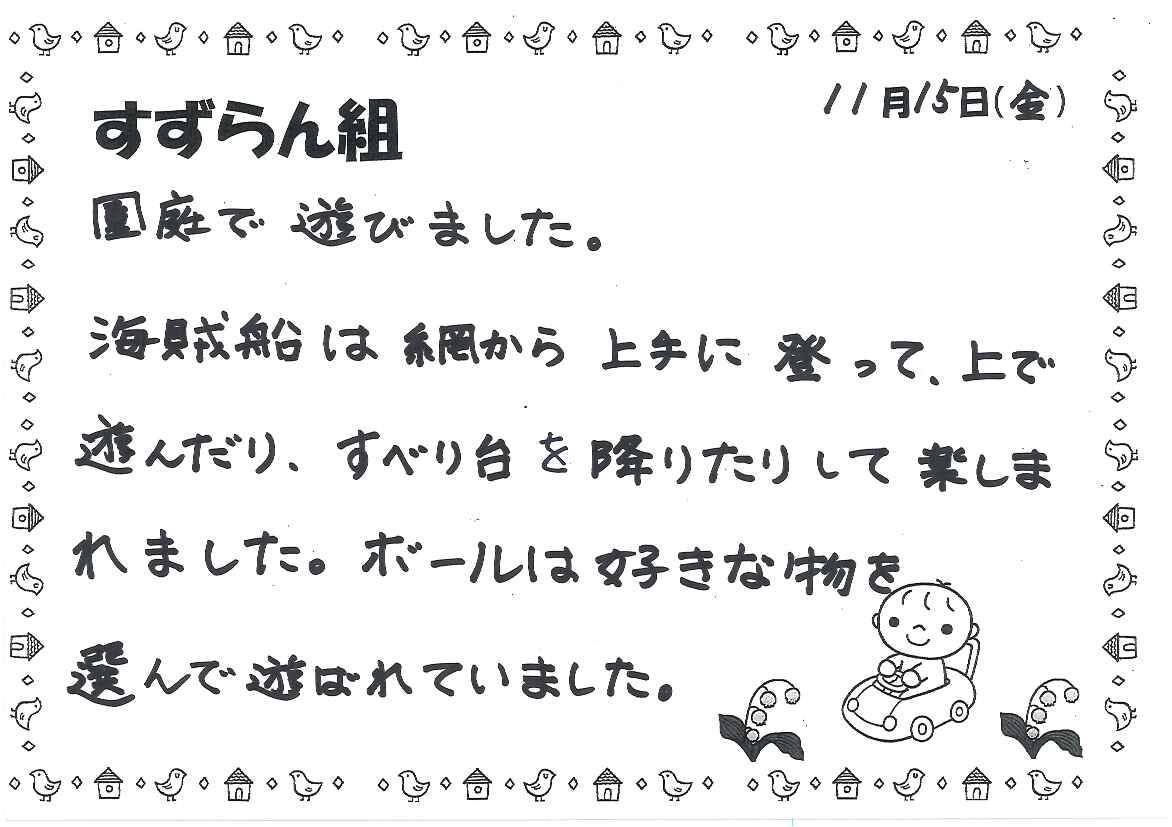 11月15日(金)
すずらん組
園庭で遊びました。
海賊船は網から上手に登って、上で
遊んだり、すべり台を降りたりして楽しま
れました。ボールは好きな物を
選んで遊ばれていました。